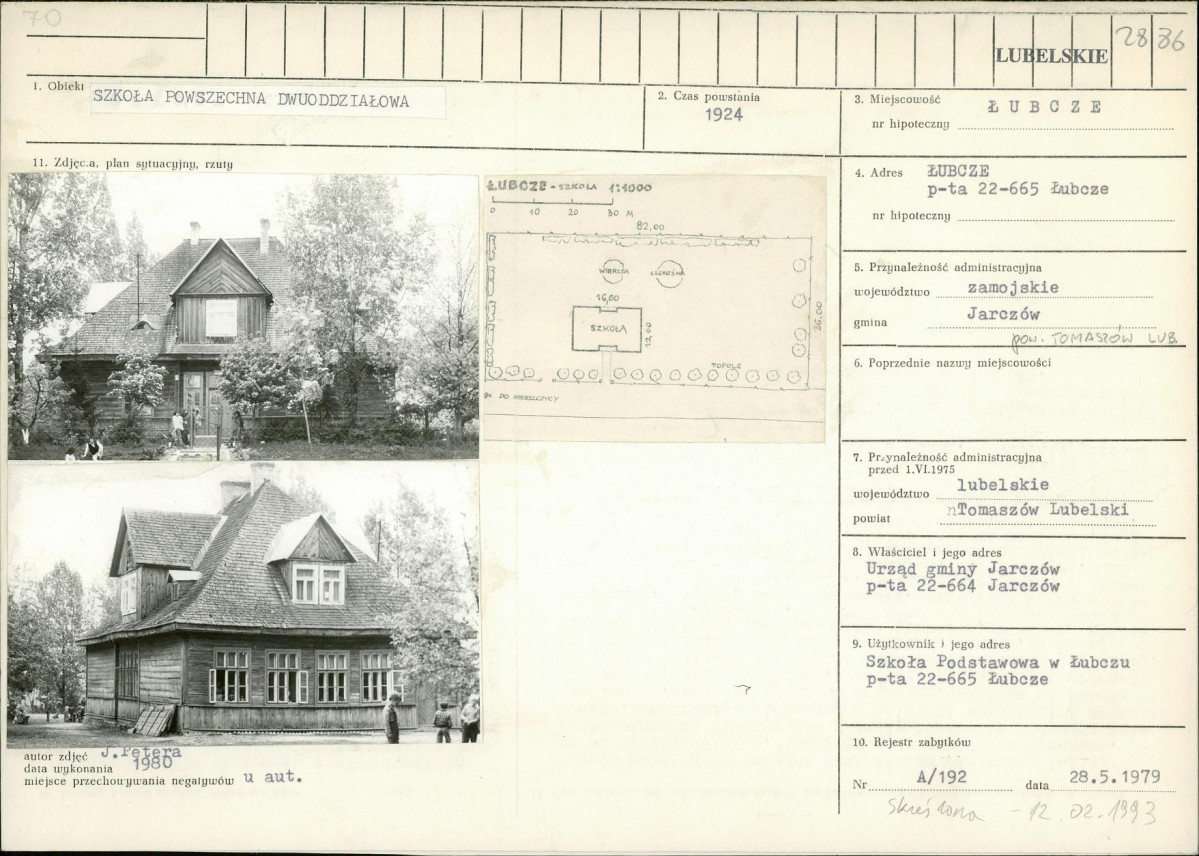 70
LUBELSKIE
2886
1. Obiekt
SZKOŁA POWSZECHNA DWUODDZIAŁOWA
2. Czas powstania
1924
3. Miejscowość
ŁUBCZE
nr hipoteczny
11. Zdjęcia, plan sytuacyjny, rzuty
4. Adres
ŁUBCZE
p-ta 22-665 Łubcze
nr hipoteczny
ŁUBCZE - SZKOŁA 1:1000
0 10 20 30 M
82,00
WIERZBA
CZEREŚNIA
16,00
SZKOŁA
12,00
36,00
TOPOLE
DO WIERSZCZYCY
5. Przynależność administracyjna
województwo zamojskie
gmina Jarczów
pow. TOMASZÓW LUB.
6. Poprzednie nazwy miejscowości
7. Przynależność administracyjna
przed 1.VI.1975
województwo lubelskie
powiat nTomaszów Lubelski
8. Właściciel i jego adres
Urząd gminy Jarczów
p-ta 22-664 Jarczów
9. Użytkownik i jego adres
Szkoła Podstawowa w Łubczu
p-ta 22-665 Łubcze
10. Rejestr zabytków
Nr A/192 data 28.5.1979
Skreślona - 12.02.1993
autor zdjęć J.Petera
data wykonania 1980
miejsce przechowywania negatywów u aut.